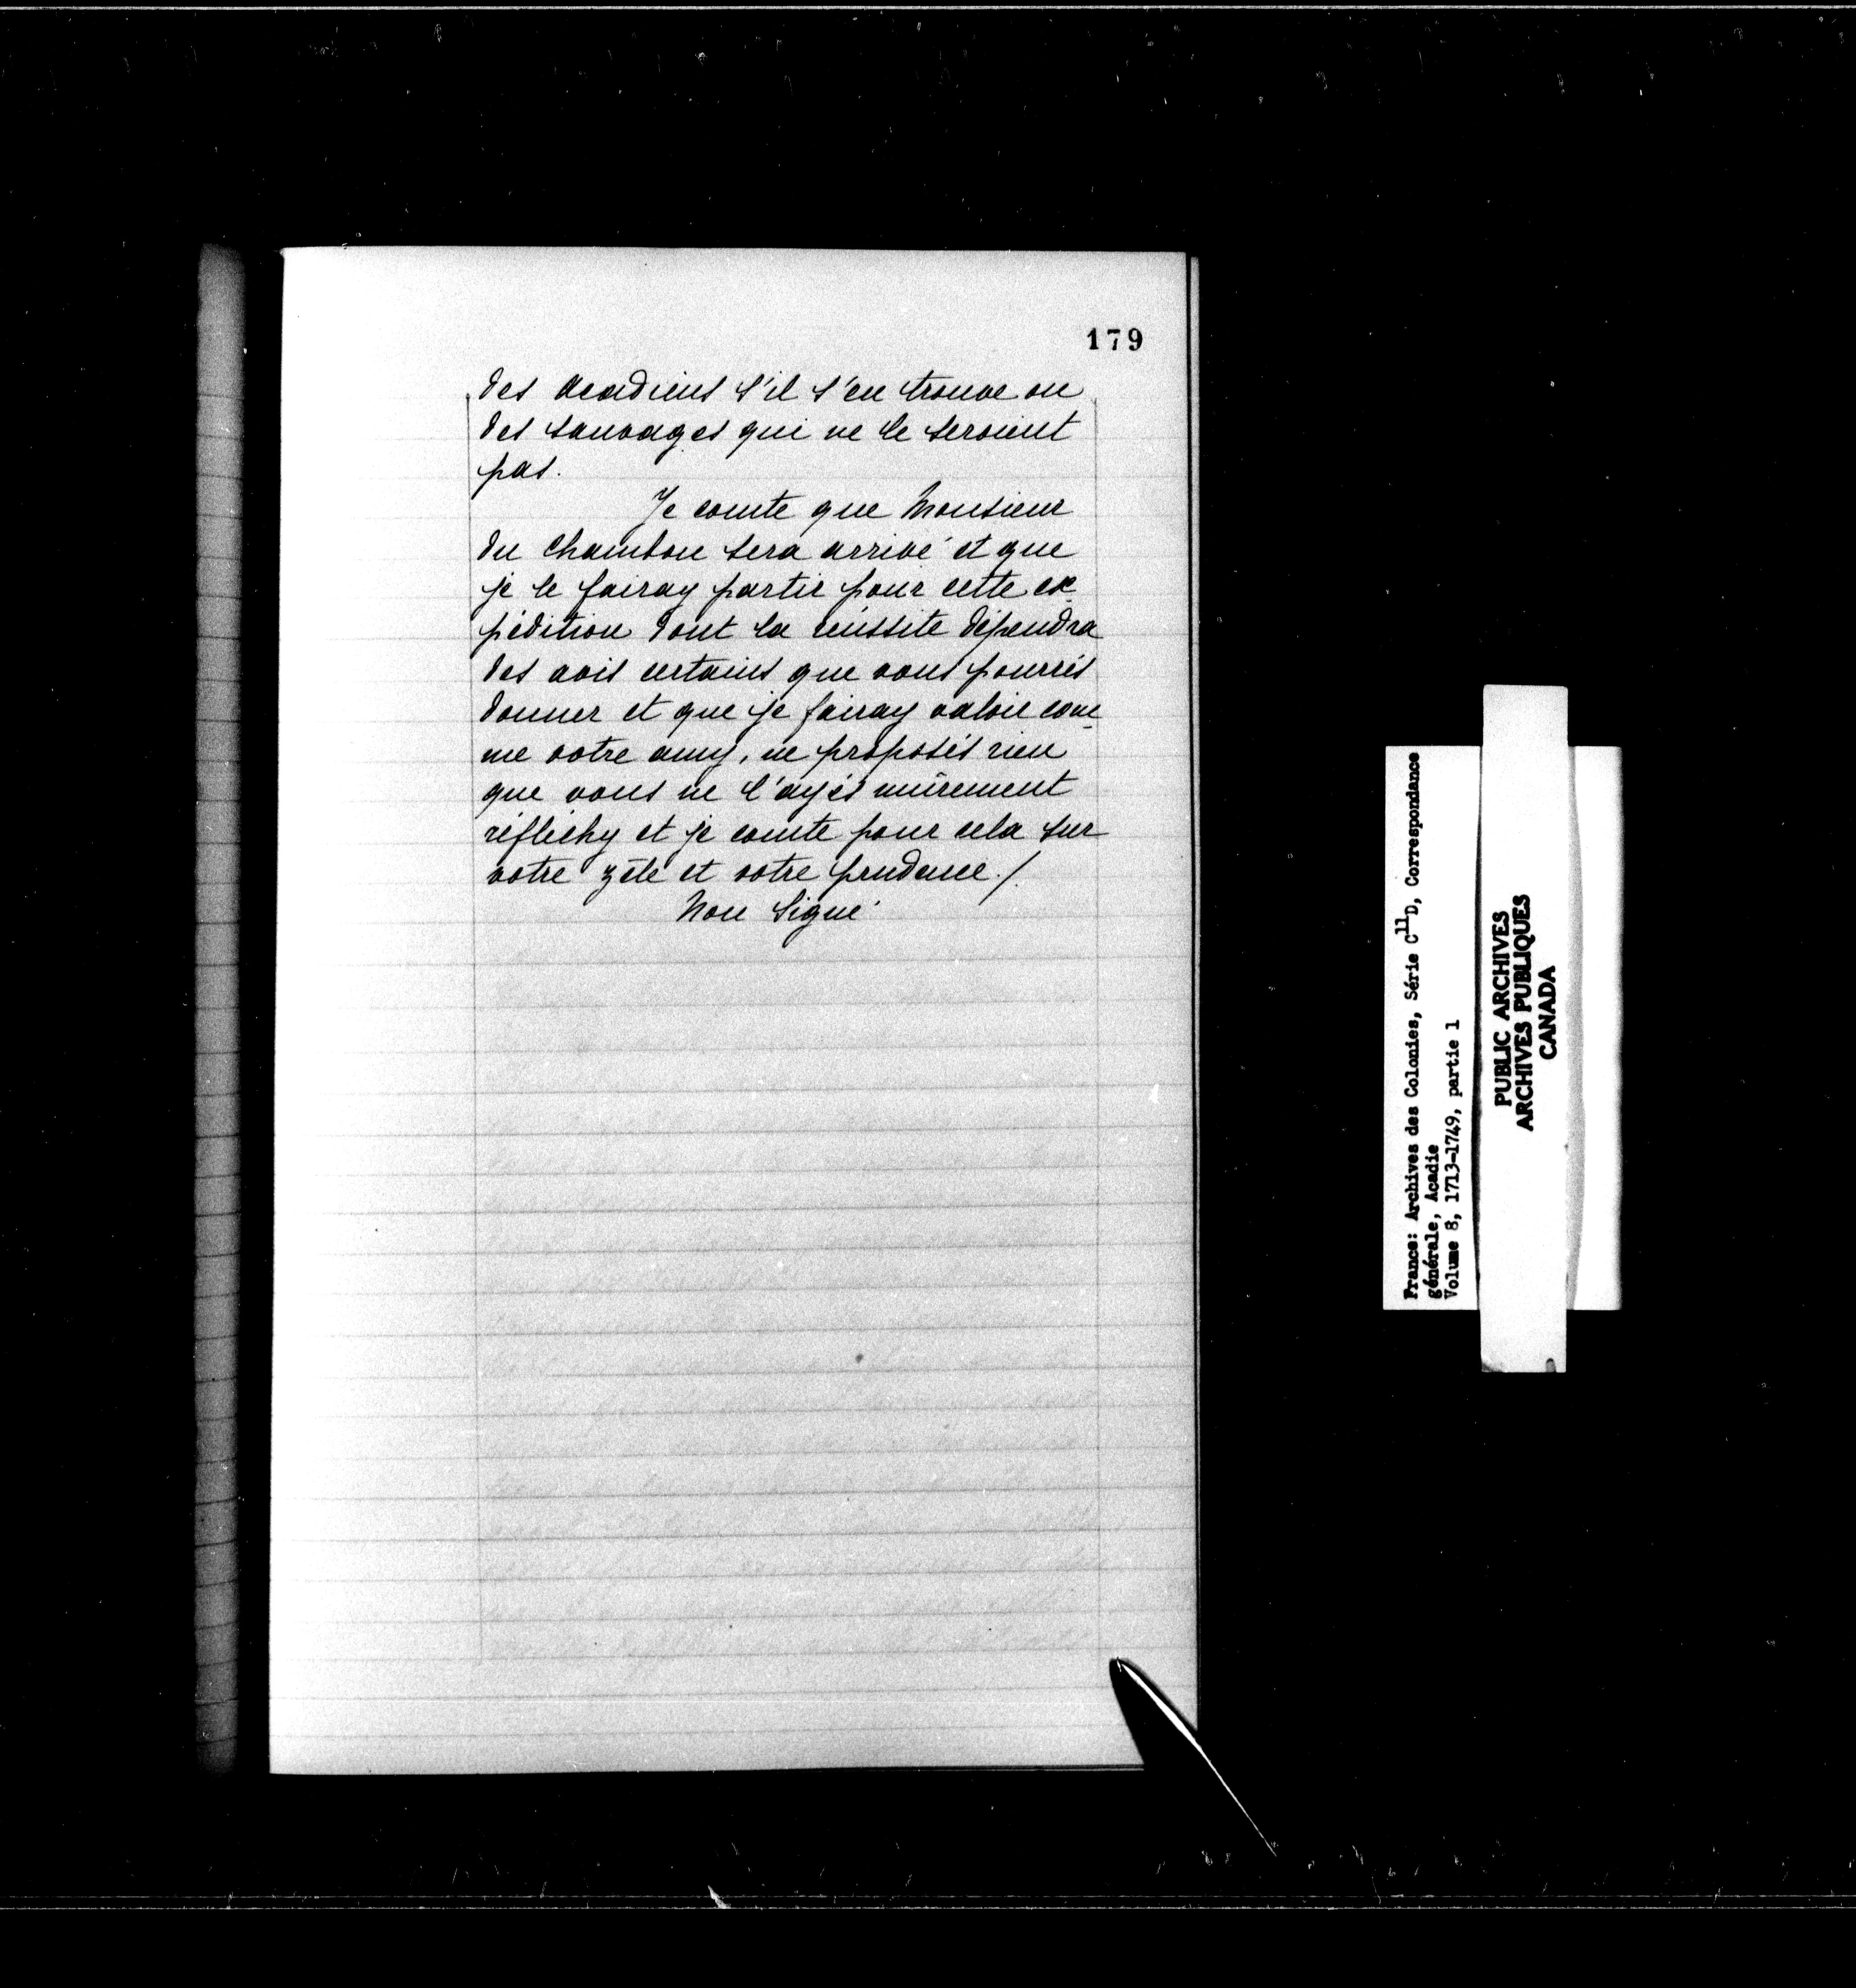 179
des Acadiens s'il s'en trouve ou
des sauvages qui ne le seroient
pas.
Je comte que Monsieur
du Chambon sera arrivé et que
je le fairay partir pour cette ex-
pédition dont la réussite dépendra
des avis certains que vous pourrés
donner et que je fairay valoir com-
me votre amy, ne proposés rien
que vous ne l'ayés mûrement
réfléchy et je comte pour cela sur
votre zèle et votre prudence./.
Non Signé
France: Archives des Colonies, Série C11D, Correspondance
générale, Acadie
Volume 8, 1713-1749, partie 1
PUBLIC ARCHIVES
ARCHIVES PUBLIQUES
CANADA